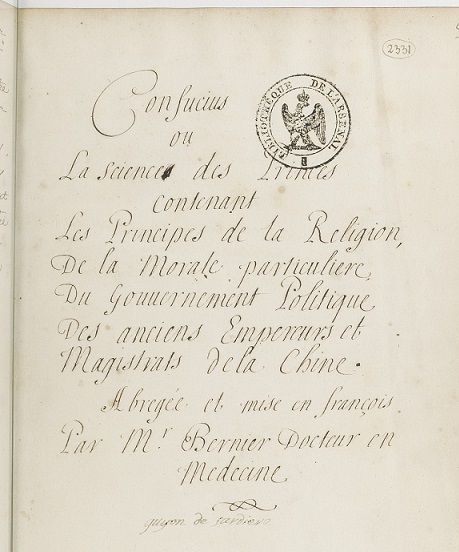 2331
BIBLIOTHEQUE DE L'ARSENAL
Confucius
ou
La science des Princes
contenant
Les Principes de la Religion,
De la Morale particuliere,
Du Gouvernement Politique
Des anciens Empereurs et
Magistrats de la Chine.
Abregée et mise en françois
Par Mr Bernier Docteur en
Medecine
guyon de sardiere